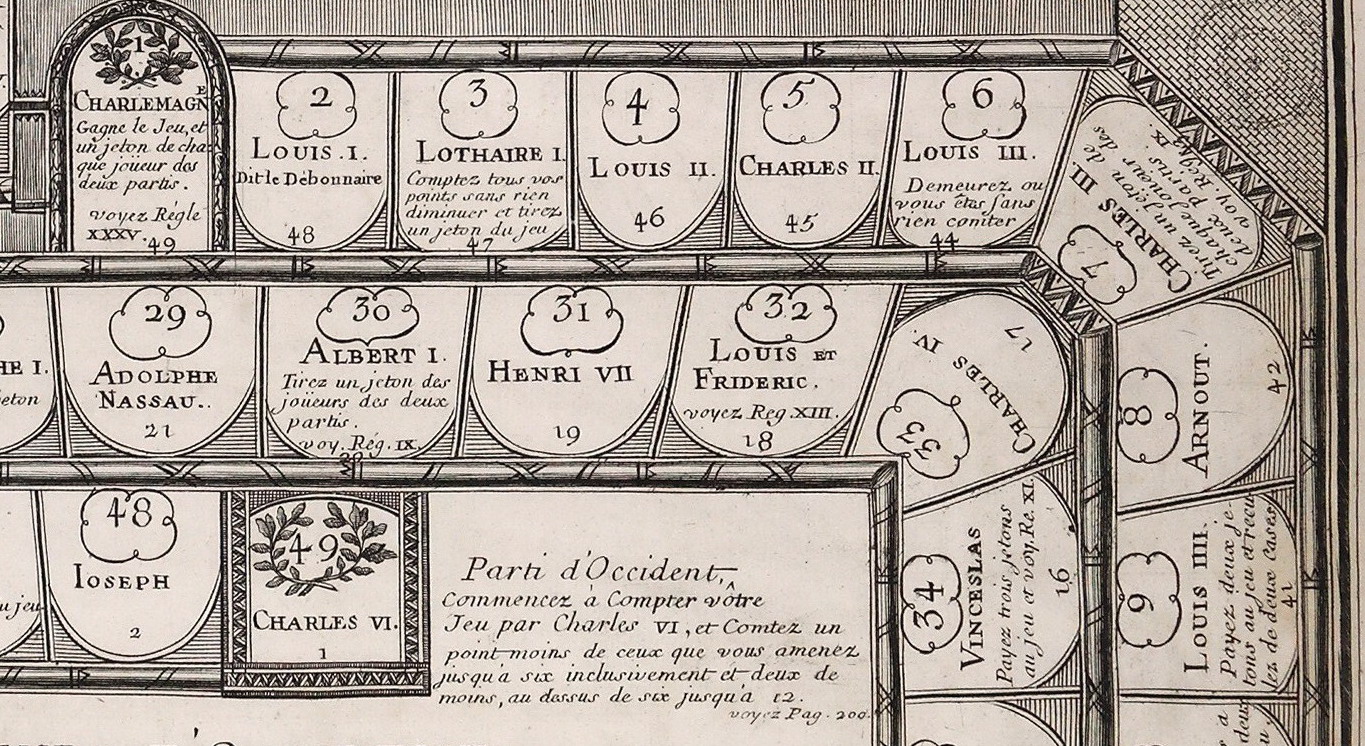 1
CHARLEMAGNE
Gagne le Jeu, et
un jeton de cha-
que joüeur des
deux partis.
voyez Régle
XXXV.
49
2
LOUIS . I.
Dit le Débonnaire
48
3
LOTHAIRE I.
Comptez tous vos
points sans rien
diminuer et tirez
un jeton du jeu
47
4
LOUIS II.
46
5
CHARLES II.
45
6
LOUIS III.
Demeurez ou
vous êtes sans
rien comter
44
7
CHARLES III.
Tirez un jéton de
chaque joueur des
deux partis.
voy. Regle IX.
8
ARNOUT.
42
9
LOUIS IIII.
Payez deux je-
tons au jeu et recu
lez de deux Cases
41
HE I.
jeton
29
ADOLPHE
NASSAU..
21
30
ALBERT I.
Tirez un jeton des
joüeurs des deux
partis.
voy. Rég. IX.
20
31
HENRI VII
19
32
LOUIS ET
FRIDERIC.
voyez Reg. XIII.
18
33
CHARLES IV.
17
34
VINCESLAS
Payez trois jetons
au jeu et voy. Re. XI.
16
u jeu
48
IOSEPH
2
49
CHARLES VI.
1
Parti d'Occident,
Commencez à Compter vôtre
Jeu par Charles VI, et Comtez un
point moins de ceux que vous amenez
jusqu'a six inclusivement et deux de
moins, au dessus de six jusqu'a 12.
voyez Pag. 200.